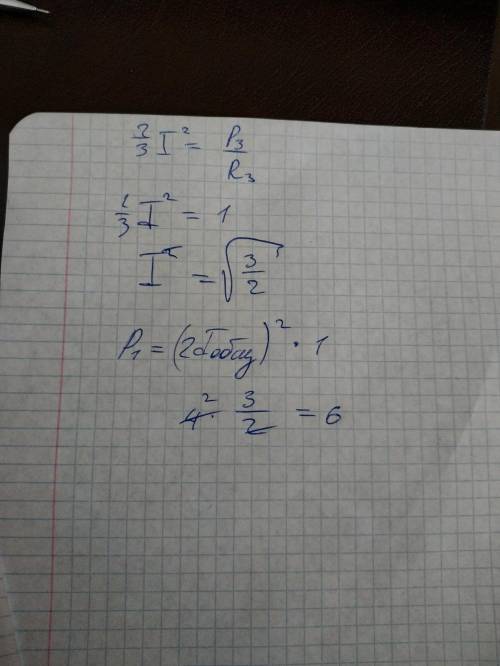 2/3 I² = P₃/R₃
2/3 I² = 1
I² = √3/2
P₁ = (2Iобщ)² · 1
4² · 3/2 = 6